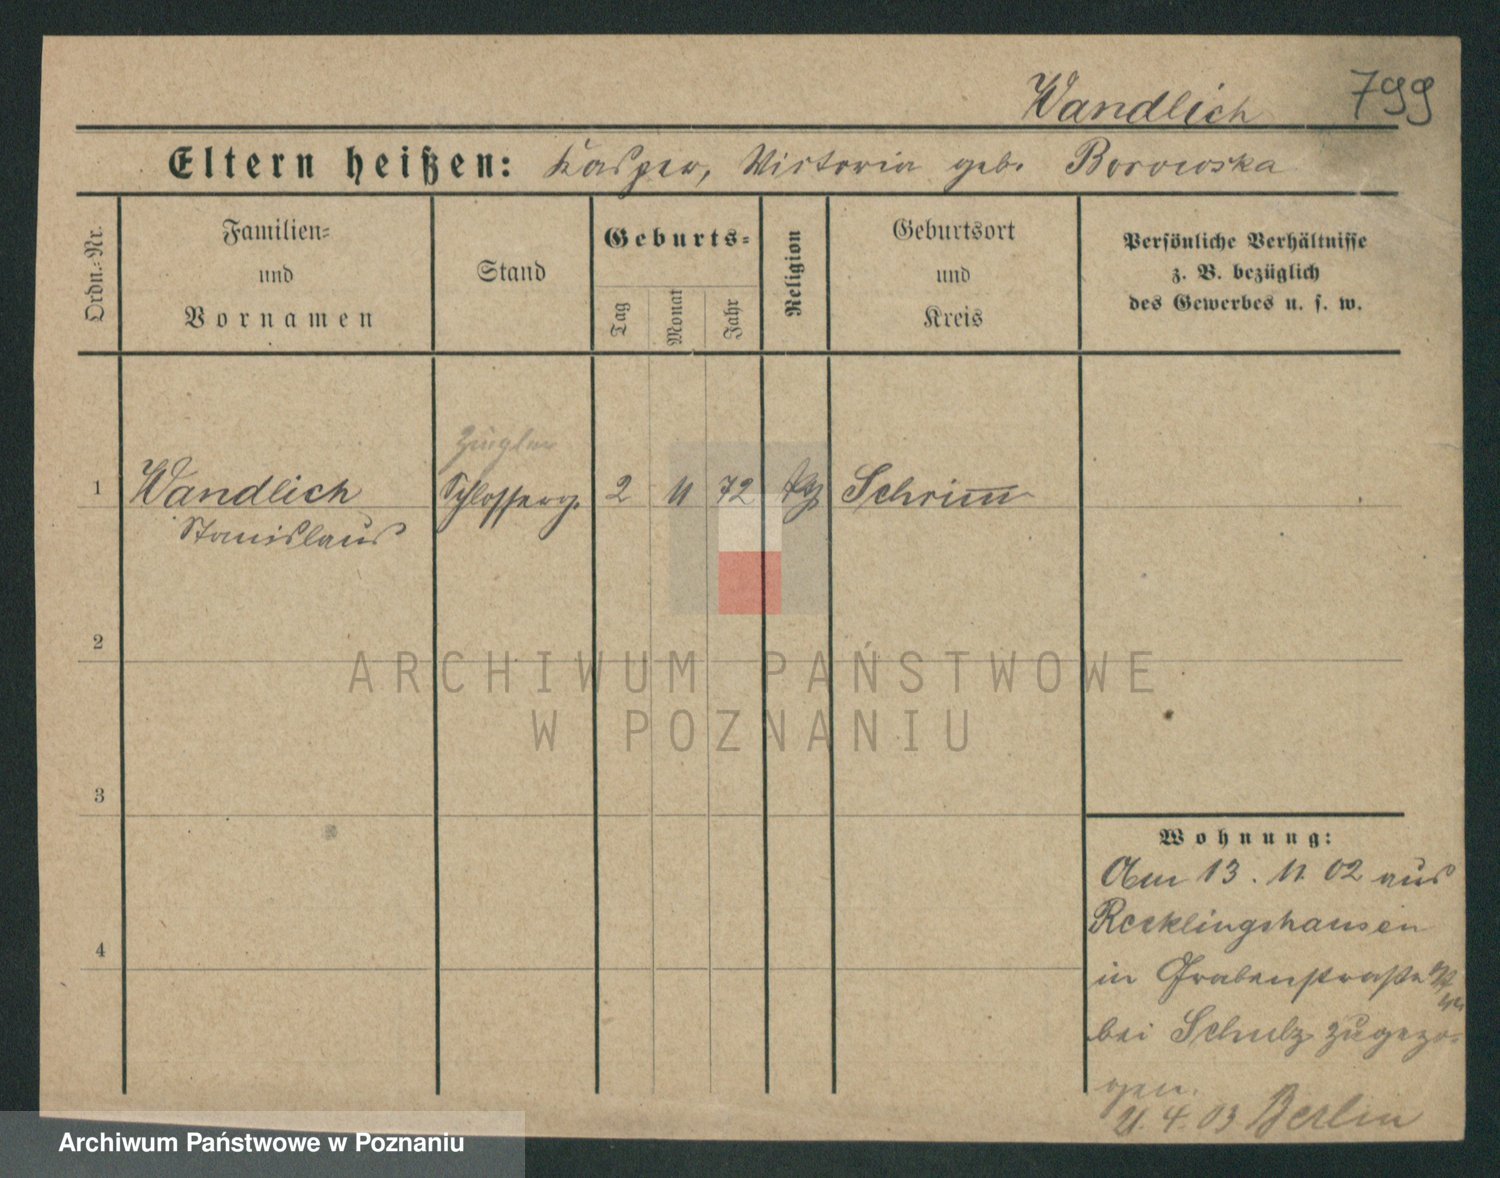 Wandlich 799
Eltern heißen: Kasper, Victoria geb. Borowska
Ordn.-Nr.
Familien-
und
Vornamen
Stand
Geburts-
Tag
Monat
Jahr
Religion
Geburtsort
und
Kreis
Persönliche Verhältnisse
z. B. bezüglich
des Gewerbes u. s. w.
Ziegler
1 Wandlich Schlosserg. 2 11 72 Schrimm
Stanislaus
2
3
4
ARCHIWUM PAŃSTWOWE
W POZNANIU
Wohnung:
Am 13. 11. 02 aus
Recklinghausen
in Grabenstraße
bei Schulz zugezo-
gen.
4. 03 Berlin
Archiwum Państwowe w Poznaniu